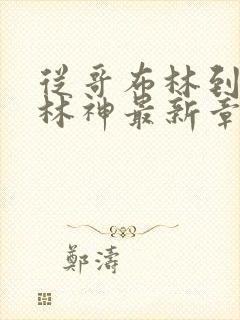 從哥布林到
林神最新章
鄭濤